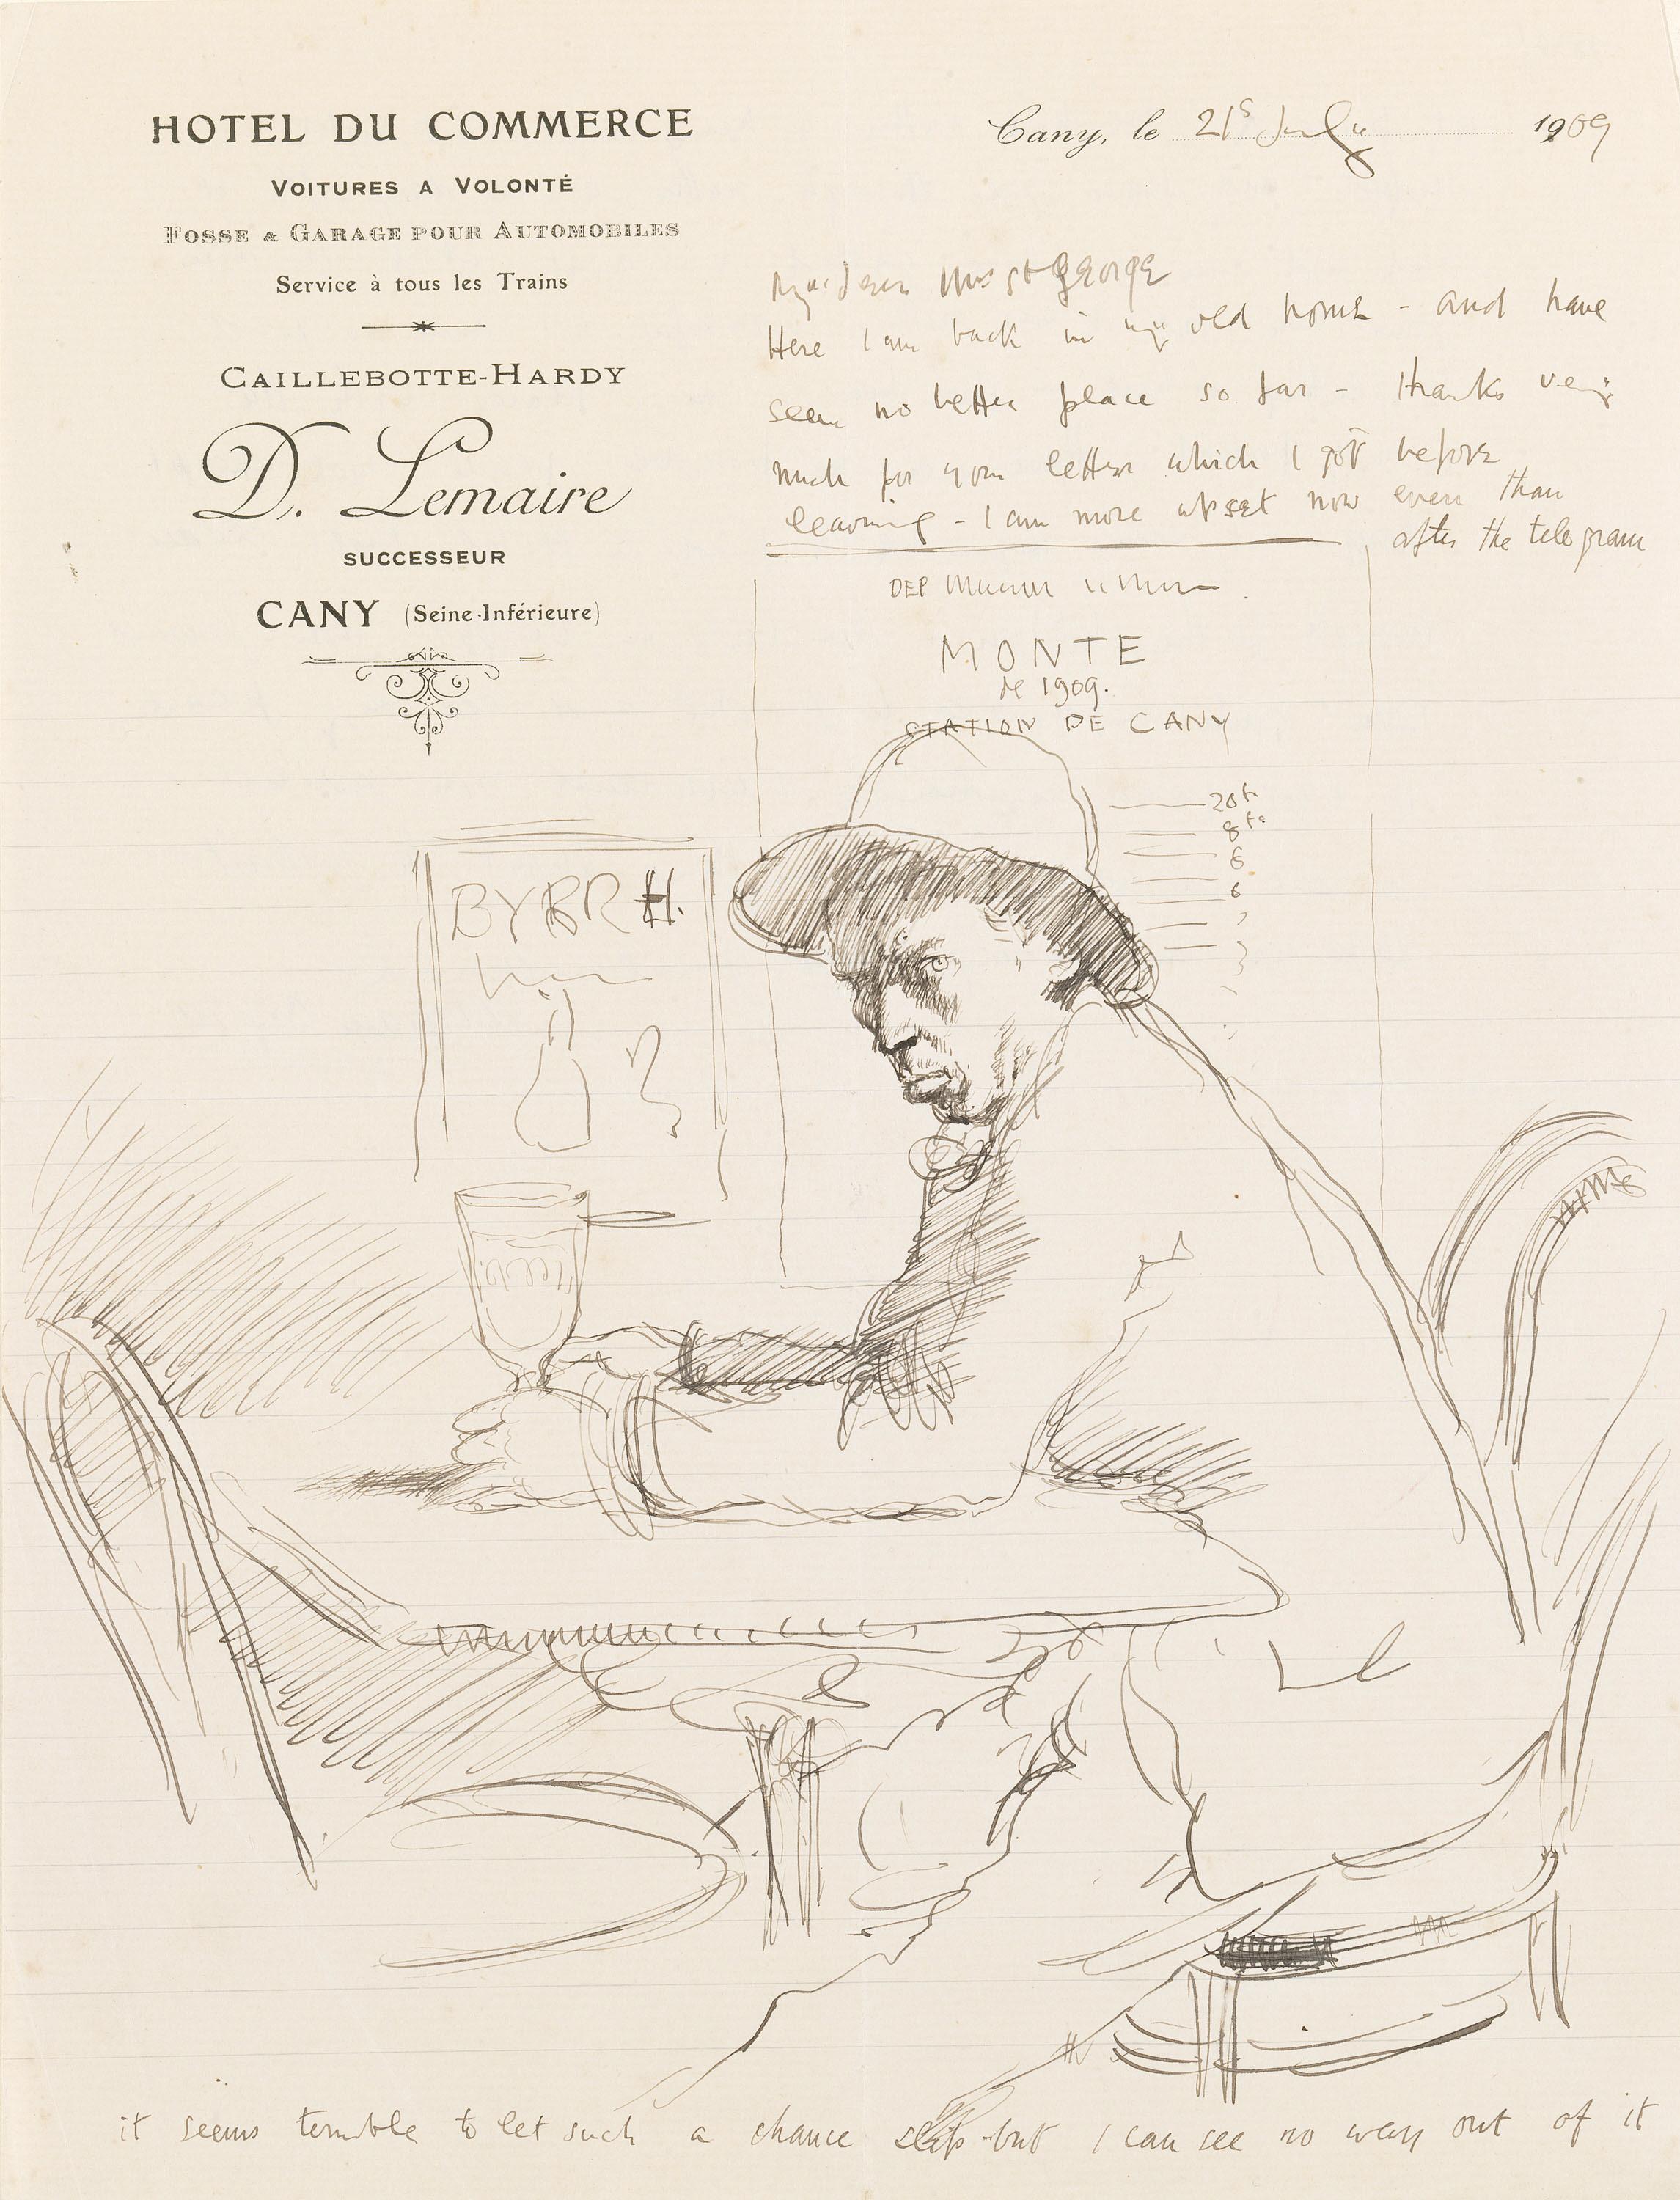 HOTEL DU COMMERCE
VOITURES A VOLONTÉ
FOSSE & GARAGE POUR AUTOMOBILES
Service à tous les Trains
CAILLEBOTTE-HARDY
D. Lemaire
SUCCESSEUR
CANY (Seine-Inférieure)
Cany, le 21s July 1909
My dear Mrs St George
Here I am back in my old home - and have
seen no better place so far - thanks very
much for your letter which I got before
leaving - I am more upset now even than
after the telegram
DEP
MONTE
de 1909.
STATION DE CANY
20f
8fs
6
6
BYRRH.
it seems terrible to let such a chance slip - but I can see no way out of it